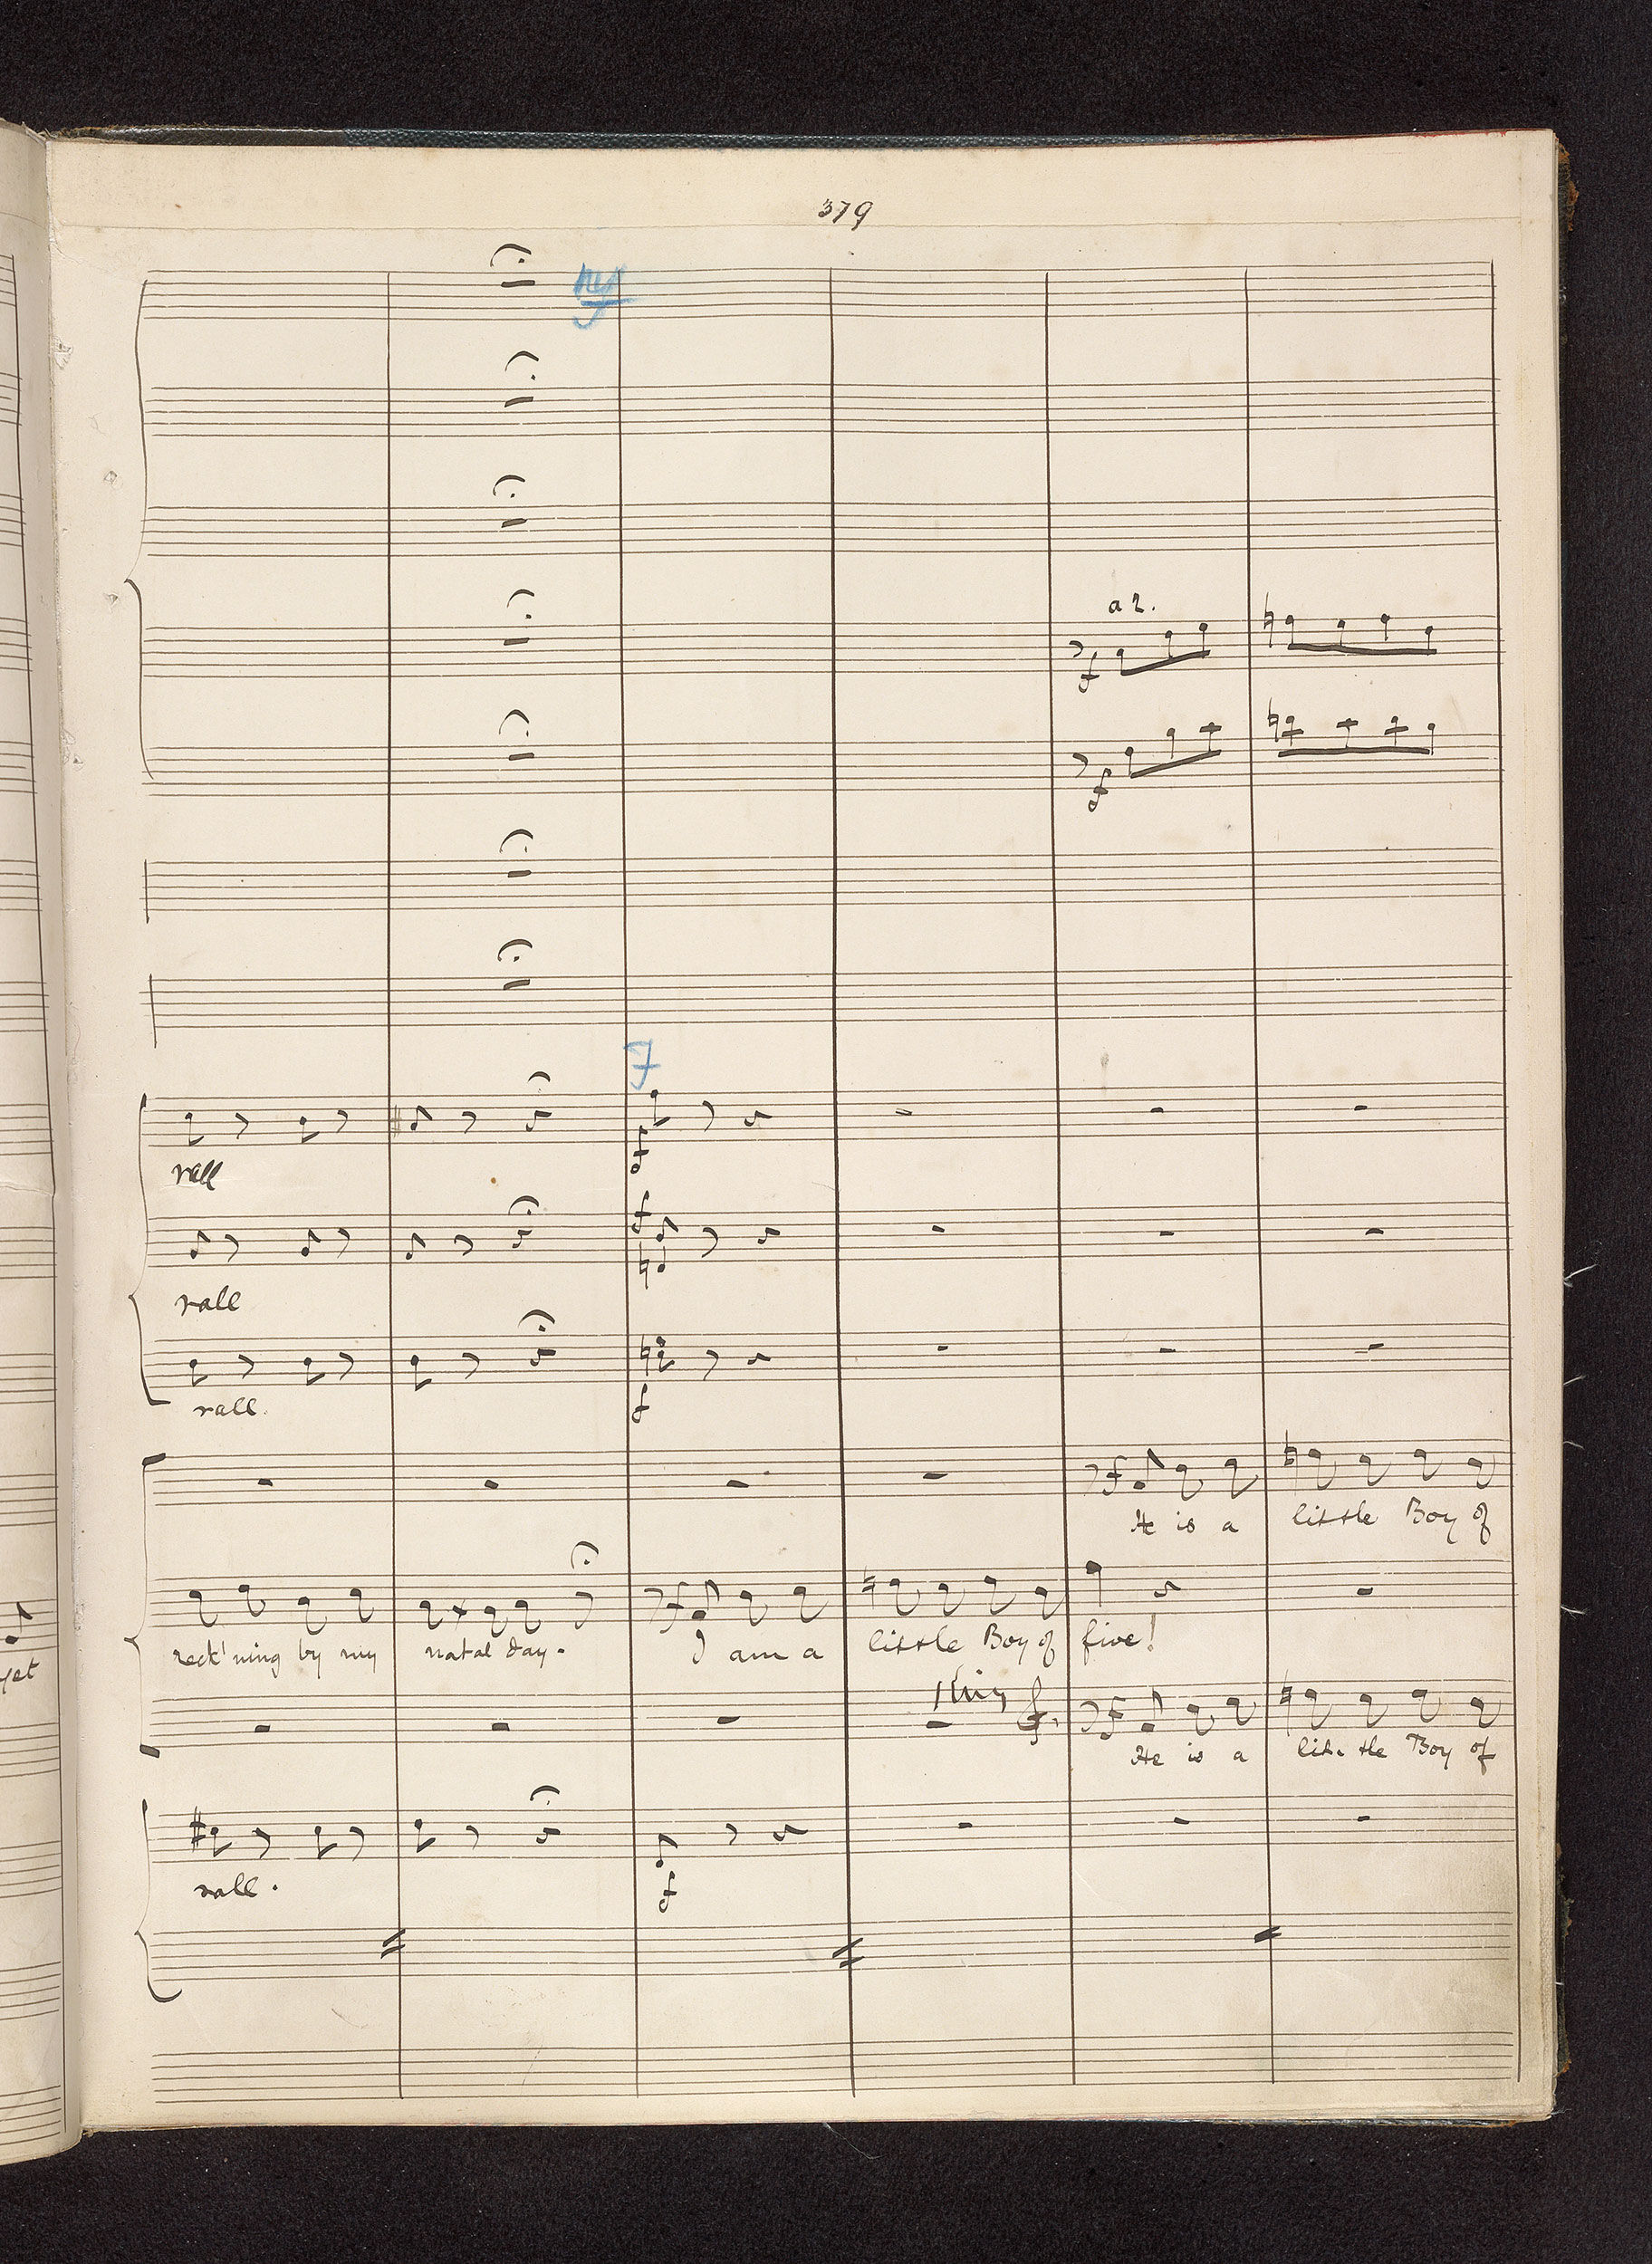 379
a 2.
f
f
F
f
rall
f
rall
f
rall.
f
He is a little Boy of
f
reck'ning by my natal day. I am a little Boy of five!
yet
King
f
He is a lit- tle Boy of
f
rall.